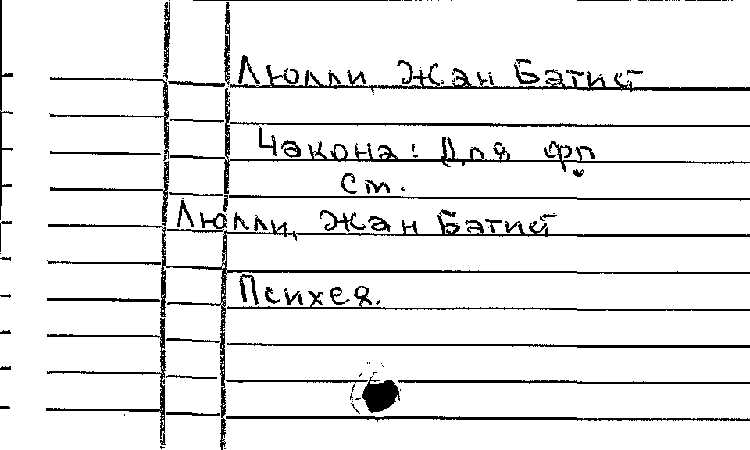 Люлли, Жан Батист
Чакона: Для фп
см.
Люлли, Жан Батист
Психея.